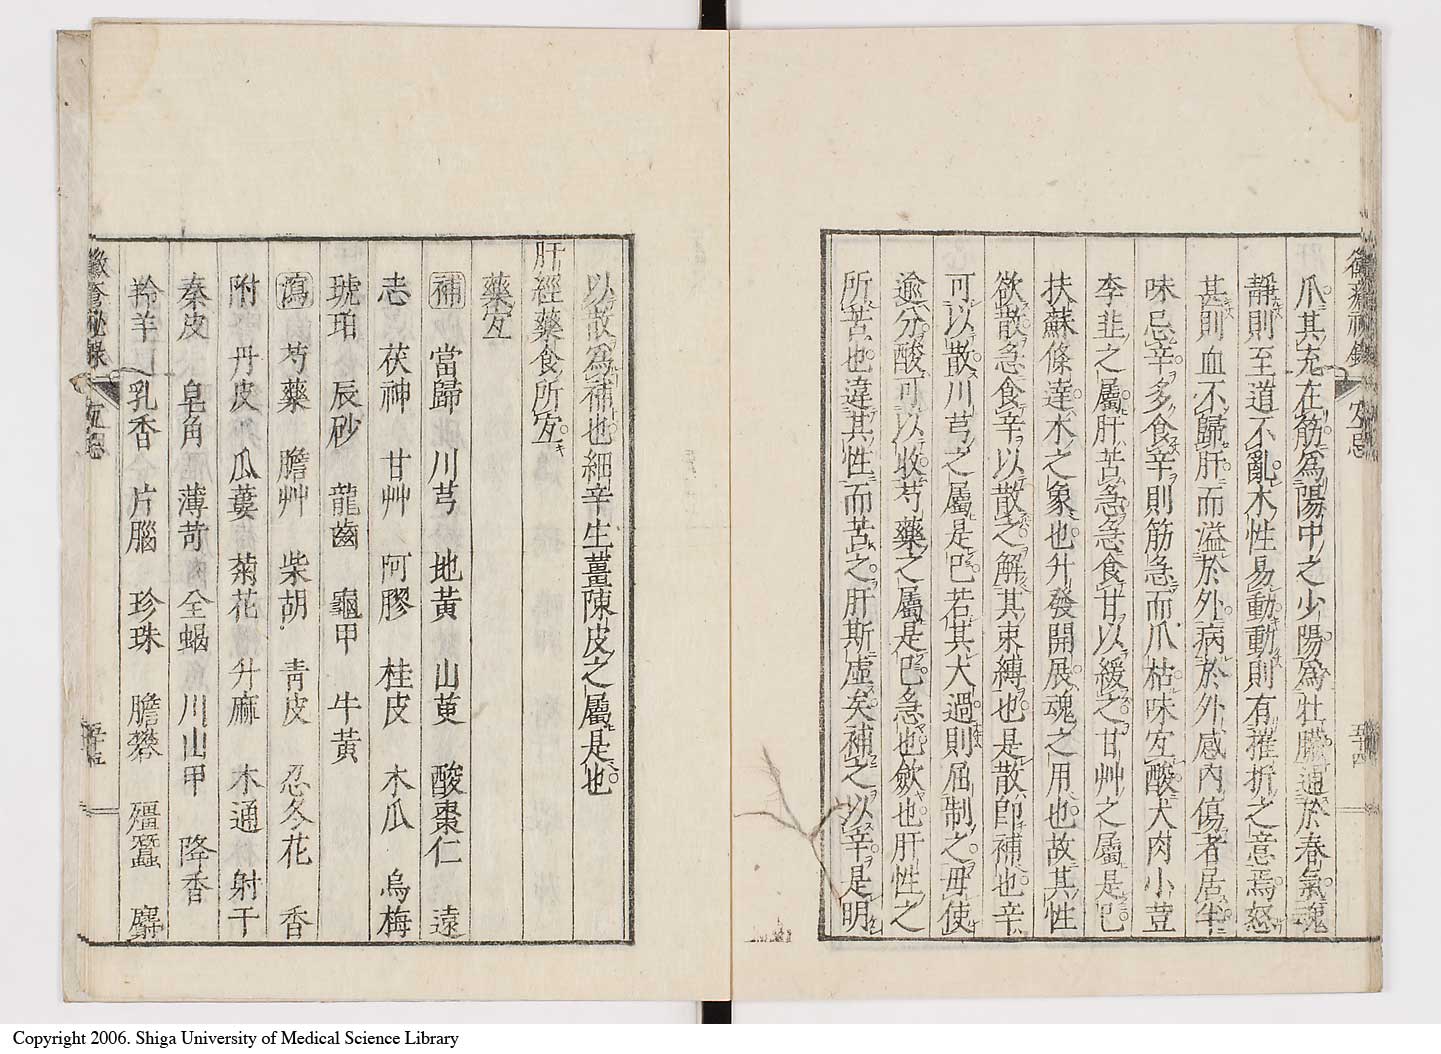 爪其充在筋爲陽中之少陽爲牡臟通於春氣魂
靜則至道不亂木性易動動則有摧折之意焉怒
甚則血不歸肝而溢於外病於外感內傷者居半
味忌辛多食辛則筋急而爪枯味宐酸犬肉小荳
李韭之屬肝苦急急食甘以緩之甘艸之屬是巳
扶蘇條達木之象也升發開展魂之用也故其性
欲散急食辛以散之解其束縛也是散卽補也辛
可以散川芎之屬是巳若其太過則屈制之毋使
逾分酸可以收芍藥之屬是巳急也斂也肝性之
所苦也違其性而苦之肝斯虛矣補之以辛是明
五十四
以散爲補也細辛生薑陳皮之屬是也
肝經藥食所宐
藥宐
補 當歸 川芎 地黃 山萸 酸棗仁 遠
志 茯神 甘艸 阿膠 桂皮 木瓜 烏梅
琥珀 辰砂 龍齒 龜甲 牛黃
瀉 芍藥 膽艸 柴胡 靑皮 忍冬花 香
附 丹皮 瓜蔞 菊花 升麻 木通 射干
秦皮 皂角 薄苛 全蝎 川山甲 降香
羚羊 乳香 片腦 珍珠 膽礬 殭蠶 麝
黴瘡秘錄 宐忌
Copyright 2006. Shiga University of Medical Science Library